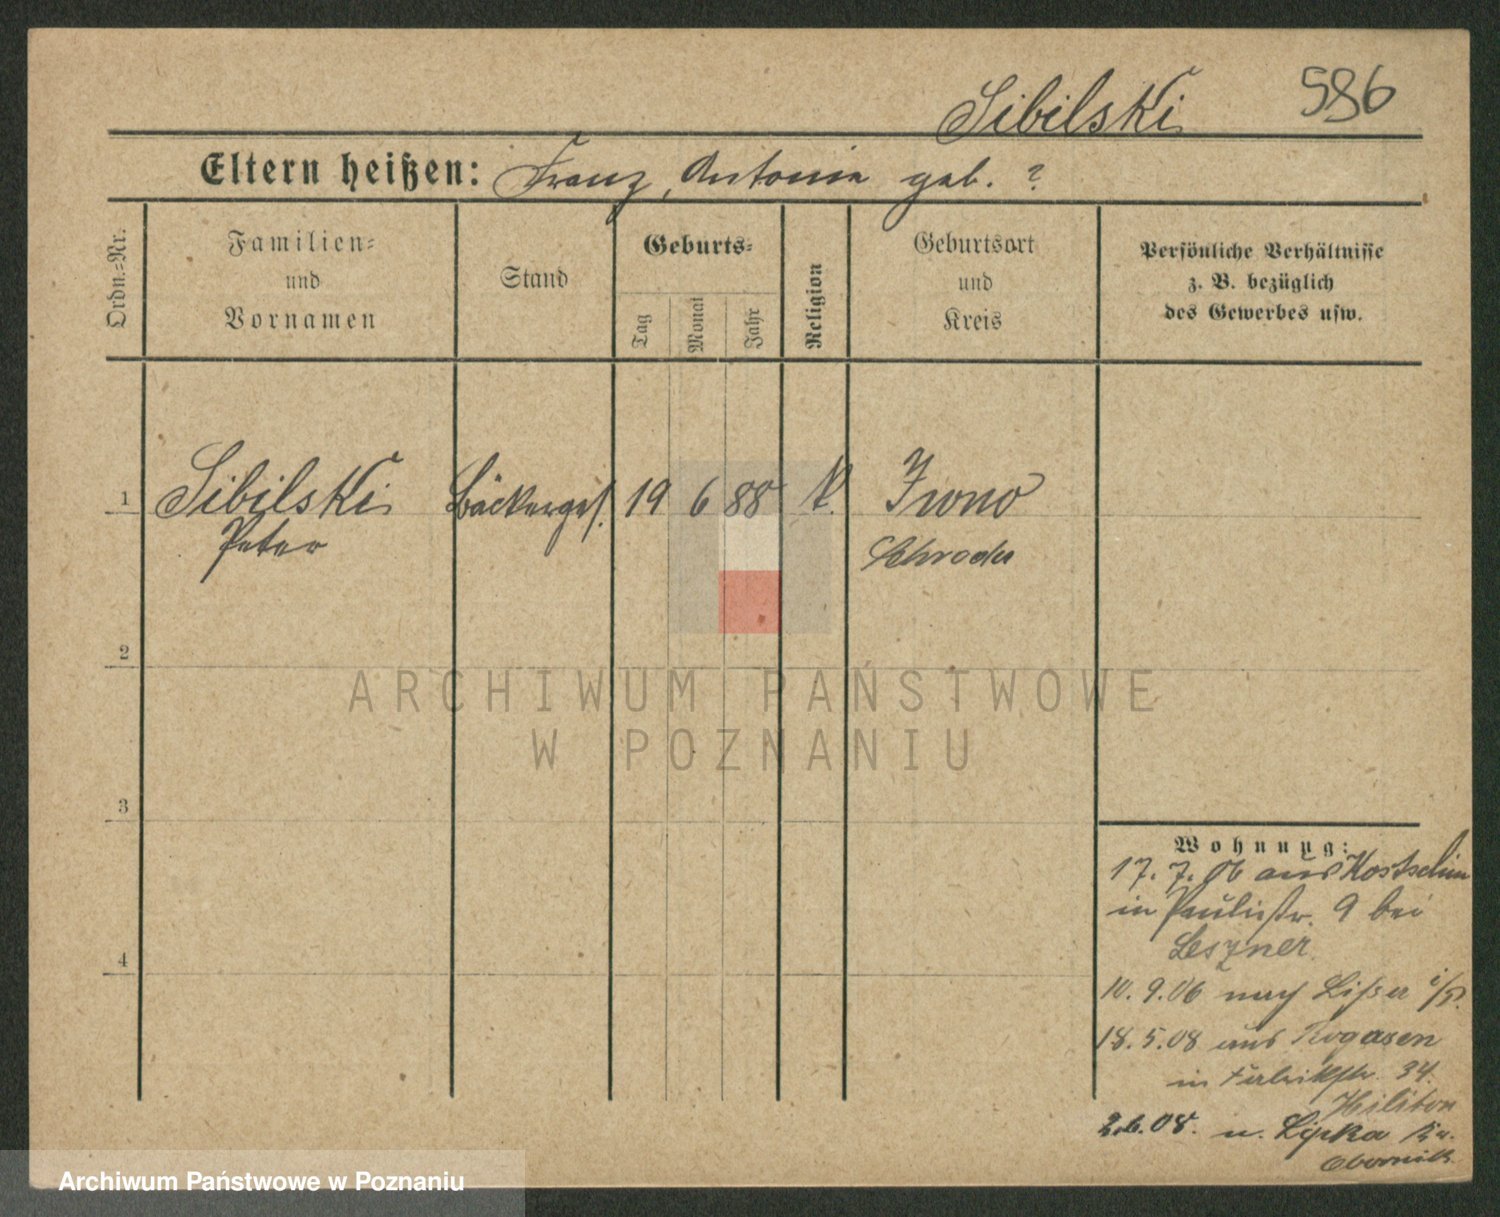 Sibilski
596
Eltern heißen: Franz, Antonie geb. ?
Ordn.=Nr.
Familien=
und
Vornamen
Stand
Geburts=
Tag
Monat
Jahr
Religion
Geburtsort
und
Kreis
Persönliche Verhältnisse
z. B. bezüglich
des Gewerbes usw.
1
Sibilski
Peter
Bäckerges.
19 6 88
k.
Iwno
Schroda
2
ARCHIWUM PAŃSTWOWE
W POZNANIU
3
4
Wohnung:
17. 7. 06 aus Kostschin
in Paulistr. 9 bei
Leszner
10. 9. 06 nach Lissa i/P.
18. 5. 08 aus Rogasen
in Fabrikstr. 34.
2.6.08. n. Lipka Kr.
Obornik
Archiwum Państwowe w Poznaniu